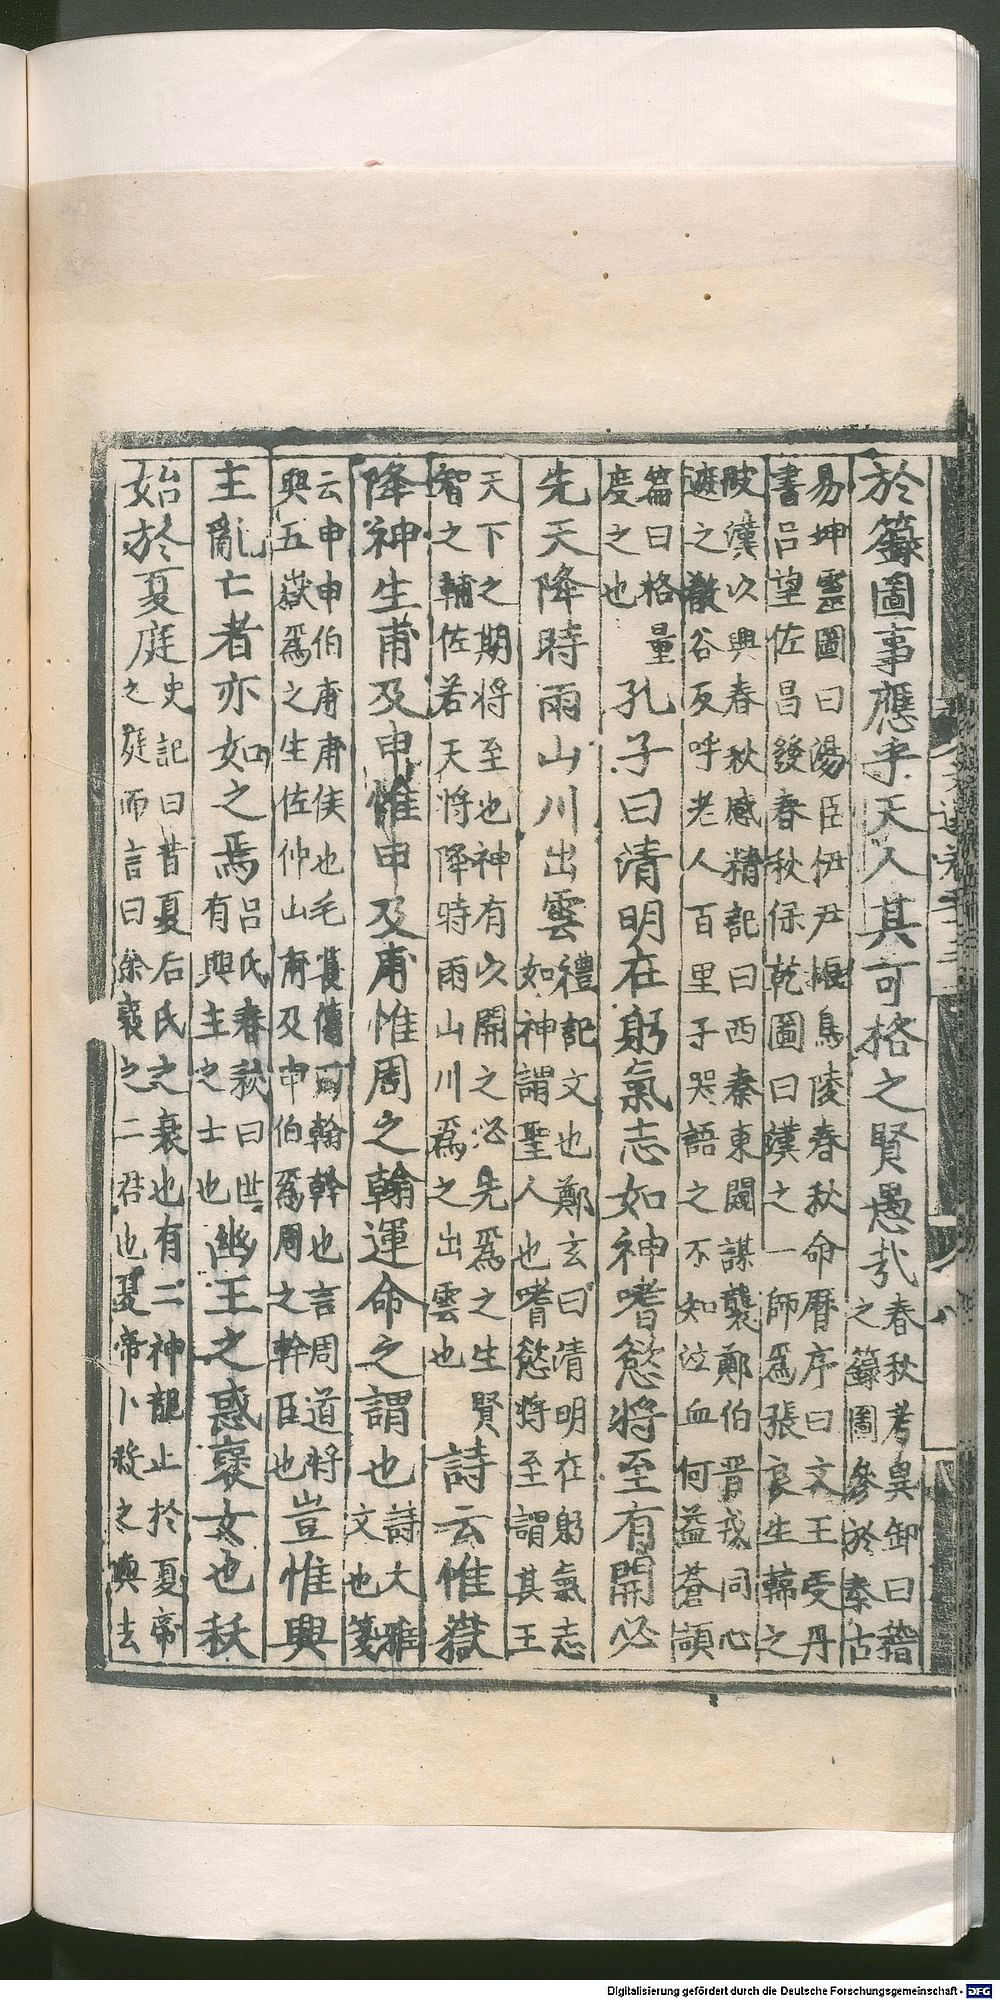 於籙圖事應乎天人其可格之賢愚哉春秋考異郵曰稽
之籙圖參於泰古
易坤靈圖曰湯臣伊尹振鳥陵春秋命曆序曰文王受丹
書呂望佐昌發春秋保乾圖曰漢之一師為張良生韓之
陂漢以興春秋感精記曰西秦東闚謀襲鄭伯晋戎同心
遮之殽谷反呼老人百里子哭語之不知泣血何益蒼頡
篇曰格量
度之也孔子曰清明在躬氣志如神嗜慾將至有開必
先天降時雨山川出雲禮記文也鄭玄曰清明在躬氣志
如神謂聖人也嗜慾將至謂其王
天下之期將至也神有以開之必先為之生賢
智之輔佐若天將降時雨山川為之出雲也詩云惟嶽
降神生甫及申惟申及甫惟周之翰運命之謂也詩大雅
文也箋
云申申伯甫甫侯也毛萇傳曰翰幹也言周道將
興五嶽為之生佐仲山甫及申伯為周之幹臣也豈惟興
主亂亡者亦如之焉呂氏春秋曰世
有興主之士也幽王之惑褒女也秡
始於夏庭史記曰昔夏后氏之衰也有二神龍止於夏帝
之庭而言曰余襃之二君也夏帝卜殺之與去
Digitalisierung gefördert durch die Deutsche Forschungsgemeinschaft - DFG